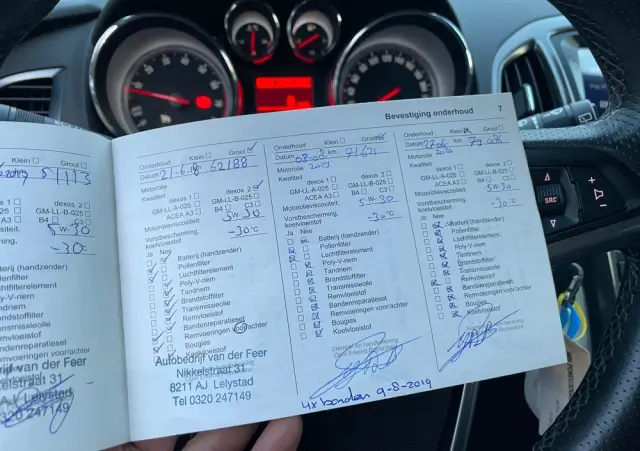 Bevestiging onderhoud 7
Klein Groot
51113
dexos 2
GM-LL-B-025
B4 C3
5W-30
-30°C
Batterij (handzender)
Pollenfilter
Luchtfilterelement
Poly-V-riem
Tandriem
Brandstoffilter
Transmissieolie
Remvloeistof
Bandenreparatieset
Remvoeringen voor/achter
Bougies
Nikkelstraat 31
8211 AJ Lelystad
0320 247149
Onderhoud Klein Groot
Datum 21-6-18 km. 62188
Motorolie
Kwaliteit
dexos 1 dexos 2
GM-LL-A-025 GM-LL-B-025
ACEA A3 B4 C3
Motorolieviscositeit: 5W-30
Vorstbescherming
koelvloeistof -30°C
Ja Nee
Batterij (handzender)
Pollenfilter
Luchtfilterelement
Poly-V-riem
Tandriem
Brandstoffilter
Transmissieolie
Remvloeistof
Bandenreparatieset
Remvoeringen voor/achter
Bougies
Autobedrijf van der Feer
Nikkelstraat 31
8211 AJ Lelystad
Tel 0320 247149
Onderhoud Klein Groot
Datum 2019 km. 71.621
Motorolie
Kwaliteit
dexos 1 dexos 2
GM-LL-A-025 GM-LL-B-025
ACEA A3 B4 C3
Motorolieviscositeit: 5W-30
Vorstbescherming
koelvloeistof -30°C
Ja Nee
Batterij (handzender)
Pollenfilter
Luchtfilterelement
Poly-V-riem
Tandriem
Brandstoffilter
Transmissieolie
Remvloeistof
Bandenreparatieset
Remvoeringen voor/achter
Bougies
Koelvloeistof
4x banden 9-8-2019
Onderhoud Klein Groot
Datum km.
Motorolie
Kwaliteit
dexos 1 dexos 2
GM-LL-A-025 GM-LL-B-025
ACEA A3 B4 C3
Motorolieviscositeit: 5W-30
Vorstbescherming
koelvloeistof -30°C
Ja Nee
Batterij (handzender)
Pollenfilter
Luchtfilterelement
Poly-V-riem
Tandriem
Brandstoffilter
Transmissieolie
Remvloeistof
Bandenreparatieset
Remvoeringen voor/achter
Bougies
Koelvloeistof
SRC